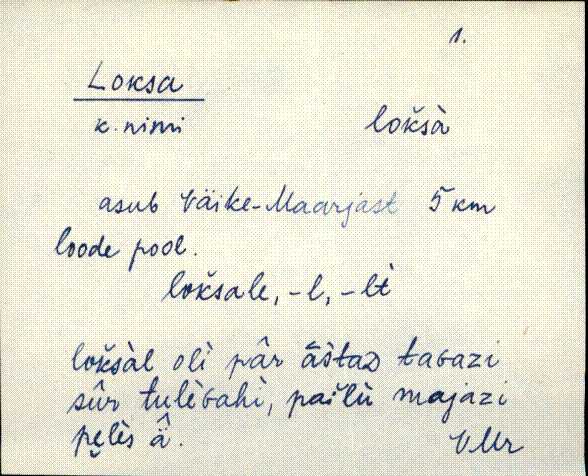 1.
Loksa
k. nimi lokšà
asub Väike-Maarjast 5 km
loode pool.
lokšale, -l, -lt̀
lokšàl olì pâr āštaD taGazi
sûr tulèGahì, pàìlù majazi
pęlès ä̂.
VMr